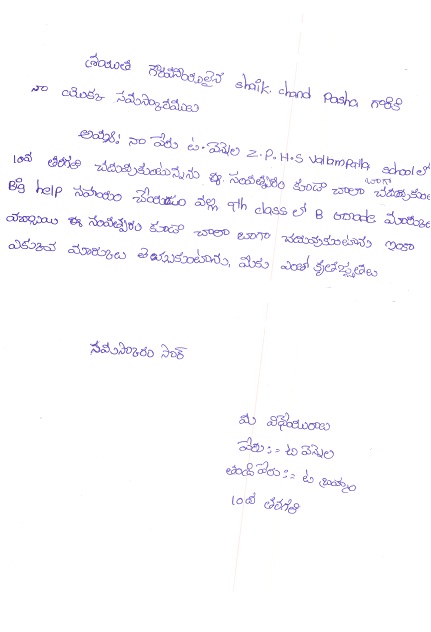 శ్రీయుత గౌరవనీయులైన shaik. chand Pasha గారికి
నా యొక్క నమస్కారములు
అయ్యా: నా పేరు ట. వెన్నెల Z.P.H.S school లో
10వ తరగతి చదువుకుంటున్నను ఈ సంవత్సరం కూడా చాలా బాగా
Big help సహాయం చేయడం వల్ల 9th class లో B Grade మార్కులు
వచ్చాయి ఈ సంవత్సరం కూడా చాలా బాగా చదువుకుంటాను ఇంకా
ఎక్కువ మార్కులు తెచ్చుకుంటాను, మీకు ఎంతో కృతజ్ఞతలు
నమస్కారం సార్
మీ విధేయురాలు
పేరు:= ట వెన్నెల
తండ్రి పేరు:= ట
10వ తరగతి